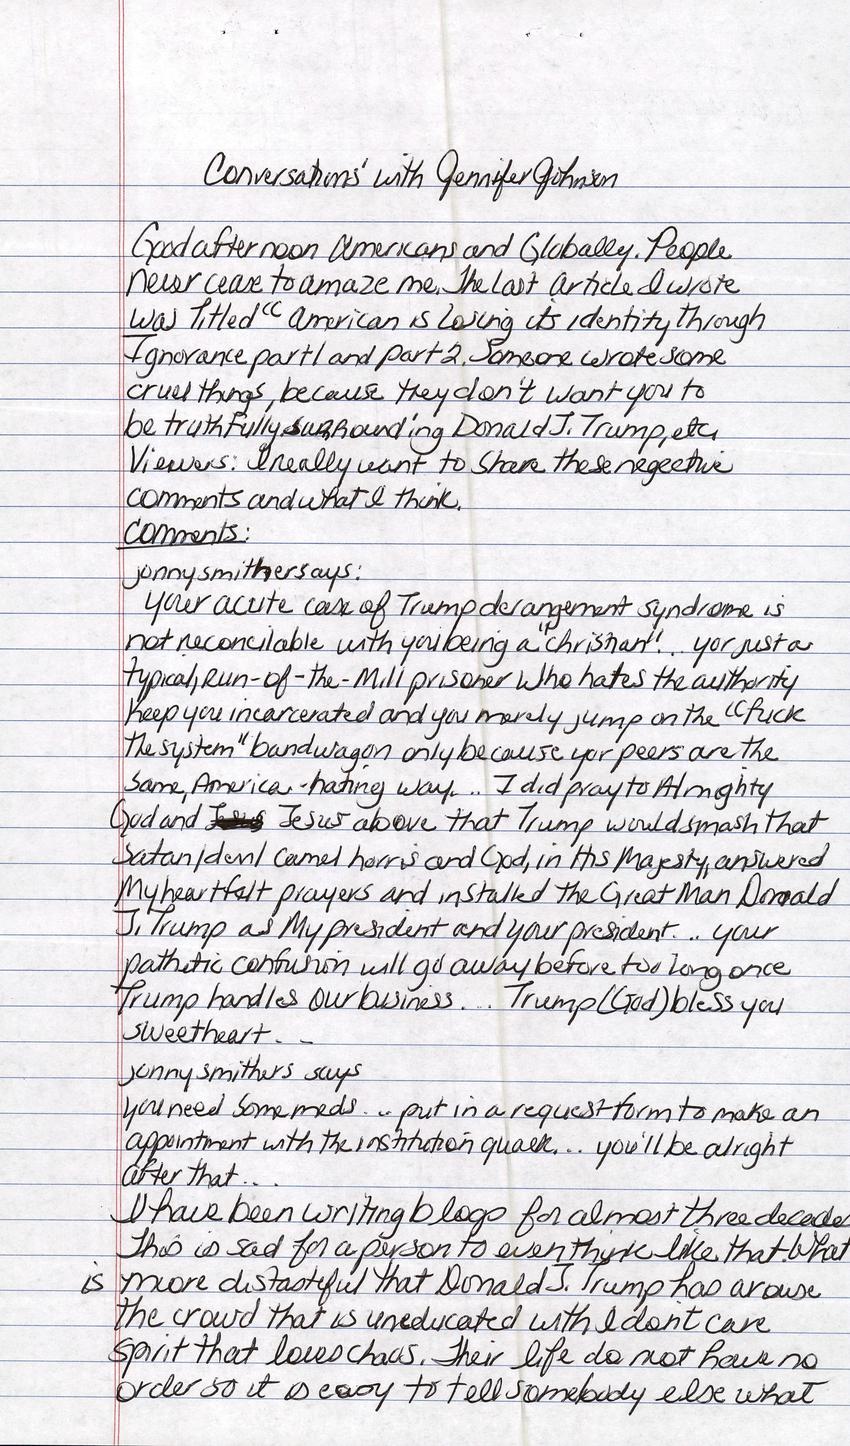 Conversations' with Jennifer Johnson
Good afternoon Americans and Globally. People
never cease to amaze me. The last article I wrote
was Titled “ American is losing its identity through
Ignorance part 1 and part 2. Someone wrote some
cruel things, because they don't want you to
be truthfully surrounding Donald J. Trump, etc,
Viewers: I really want to share these negective
comments and what I think.
Comments:
jonnysmithers says:
your acute case of Trump derangement syndrome is
not reconcilable with you being a "christian"... yor just a
typical, Run-of-the-Mill prisoner who hates the authority
keep you incarcerated and you merely jump on the "fuck
the system" bandwagon only because yor peers are the
same, America-hating way... I did pray to Almighty
God and Jesus above that Trump would smash that
Satan/devil camel harris and God, in His Majesty, answered
My heartfelt prayers and installed the Great Man Donald
J. Trump as My president and your president... your
pathetic confusion will go away before too long once
Trump handles our business... Trump (God) bless you
sweetheart. . -
jonny smithers says
you need some meds... put in a request form to make an
appointment with the institution quack... you'll be alright
after that...
I have been writing blogs for almost three decades
This is sad for a person to even think like that. What
is more distasteful that Donald J. Trump has arouse
the crowd that is uneducated with I don't care
spirit that loves chaos. Their life do not have no
order so it is easy to tell somebody else what